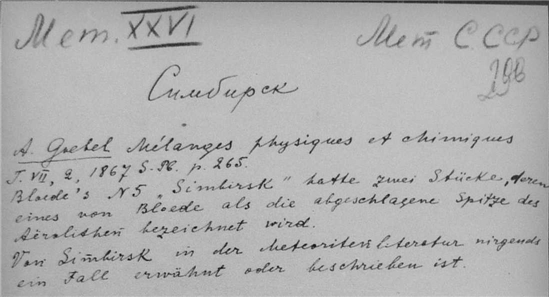 Мет. XXVI
Мет СССР
Симбирск
A. Goebel Mélanges physiques et chimiques
T. VII, 2, 1867 S-Pb. p. 265.
Bloede's N5 „Simbirsk" hatte zwei Stücke, deren
eines von Bloede als die abgeschlagene Spitze des
Aërolithen bezeichnet wird.
Von Simbirsk in der Meteoritenliteratur nirgends
ein Fall erwähnt oder beschrieben ist.